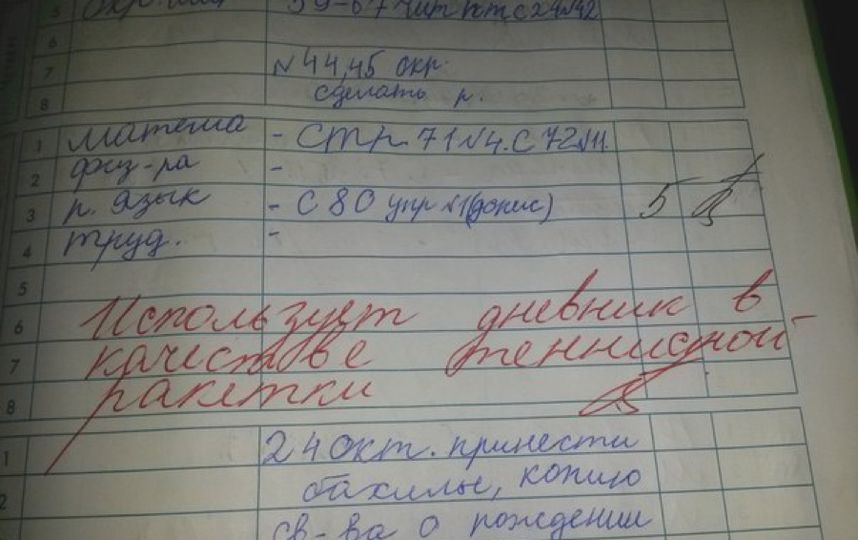 5 Окр. мир 59-67 чит
6
7 №44,45 окр.
8 сделать р.
1 матема - стр. 71 №4. С 72 №11.
2 физ-ра -
3 р. язык - с 80 упр №1 (допис) 5
4 труд. -
5
6 Использует дневник в
7 качестве теннисной
8 ракетки
1 24 окт. принести
2 бахилы, копию
св-ва о рождении